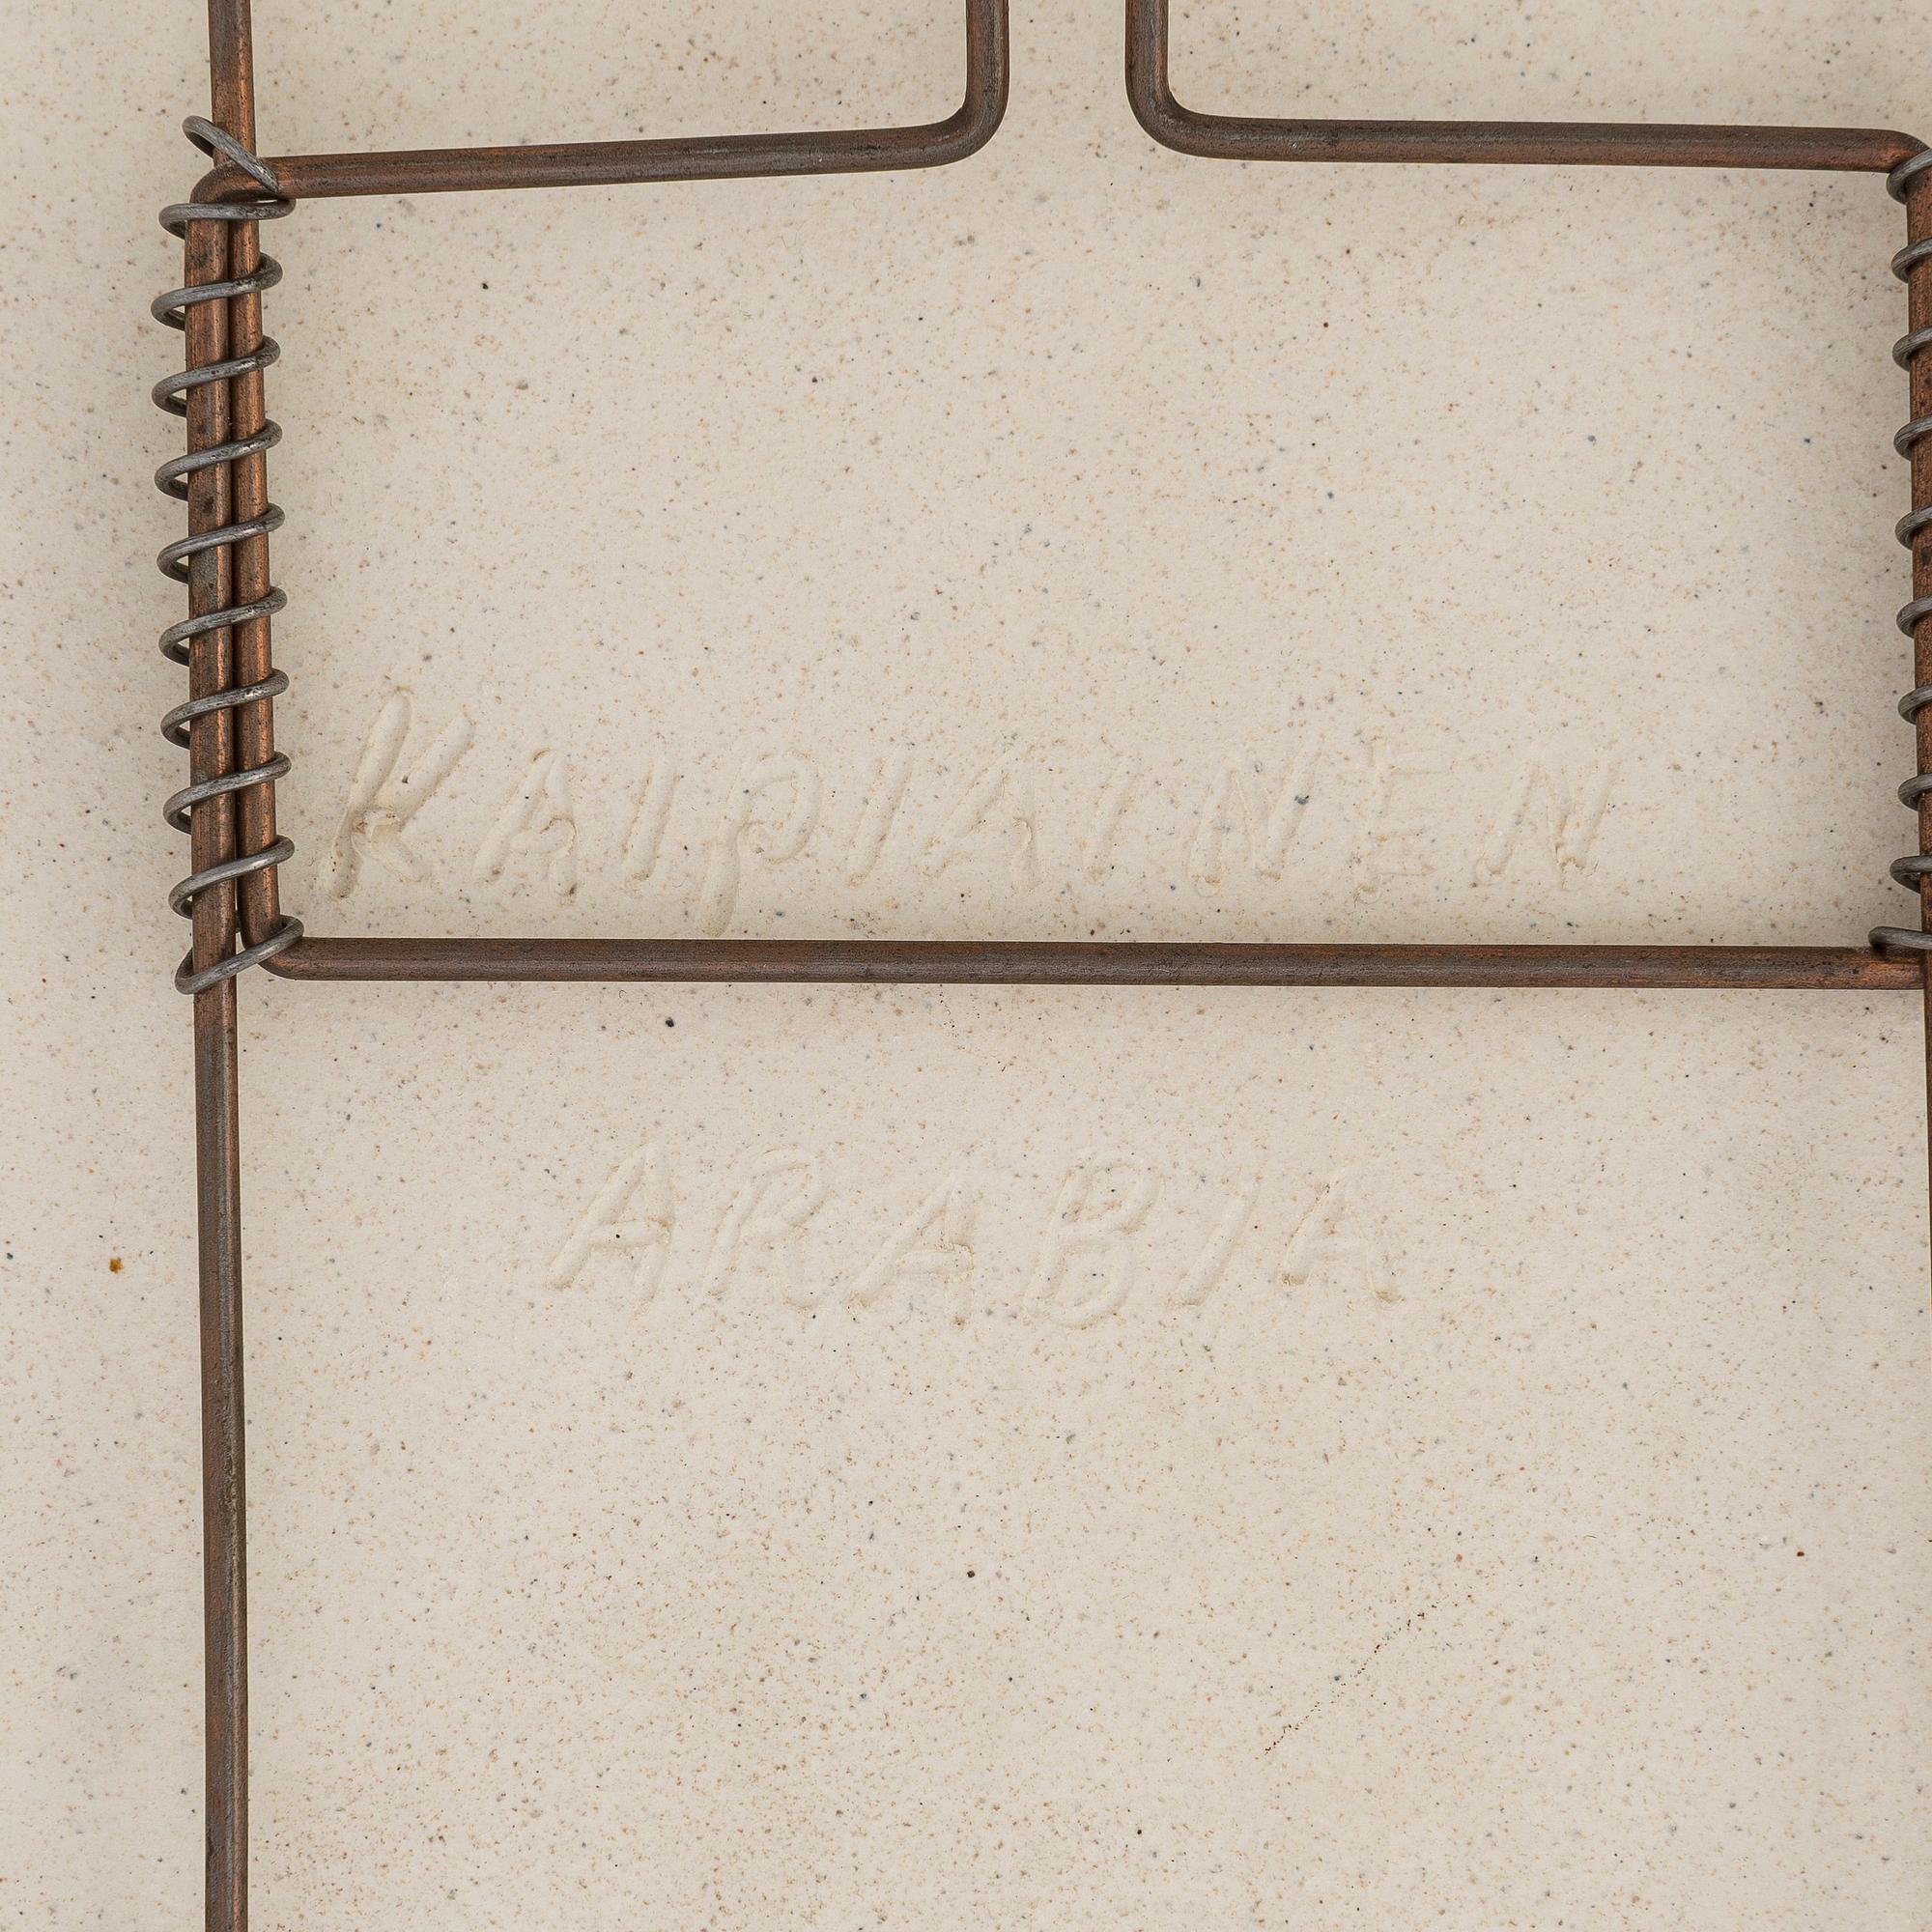 KAIPIAINEN
ARABIA